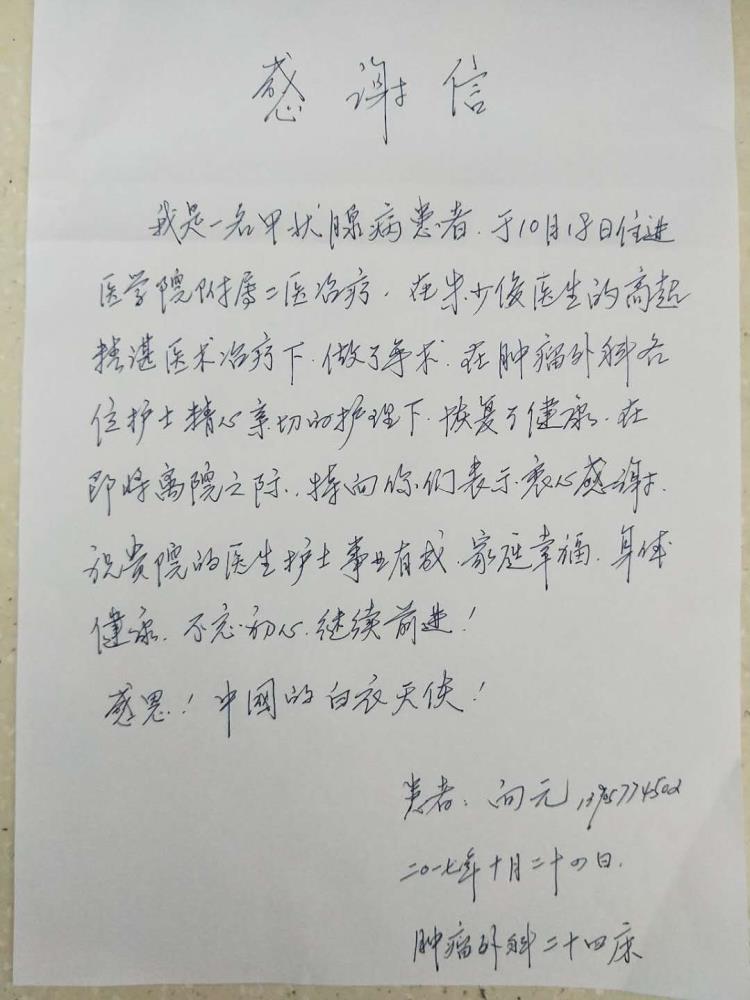 感谢信
我是一名甲状腺病患者.于10月18日住进
医学院附属二医治疗.在朱少俊医生的高超
精湛医术治疗下.做了手术.在肿瘤外科各
位护士精心亲切的护理下.恢复了健康.在
即将离院之际.,特向你们表示衷心感谢.
祝贵院的医生护士事业有成.家庭幸福.身体
健康.不忘初心.继续前进!
感恩!中國的白衣天使!
患者:向元
二〇一七年十月二十四日.
肿瘤外科二十四床